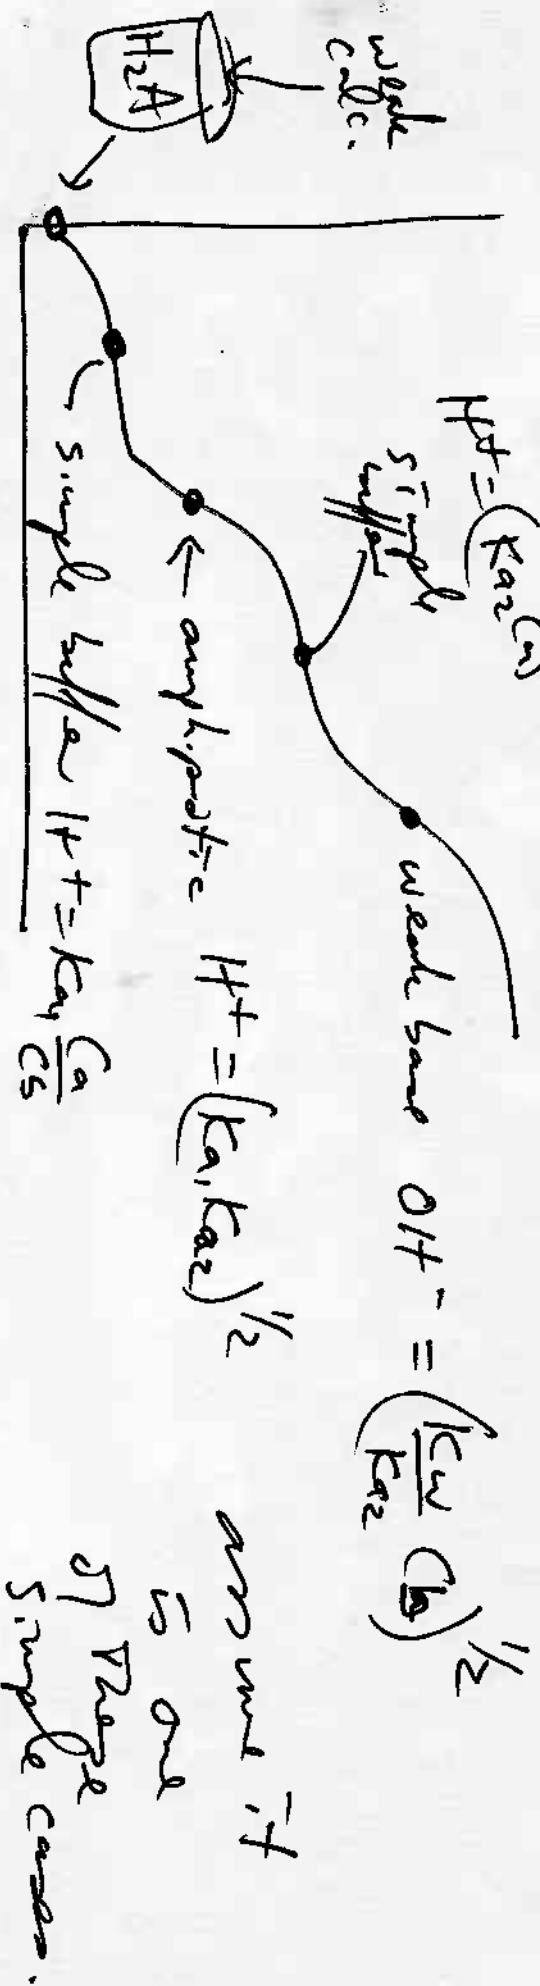 weak
calc.
H₂A
H⁺ = (Ka₂ (
simple
buffer
weak base OH⁻ = (Kw/Ka₂ Cb)^½
← amphipotic H⁺ = (Ka₁ Ka₂)^½
simple buffer H⁺ = Ka₁ Ca/Cb
assume it
is one
of these
simple cases.